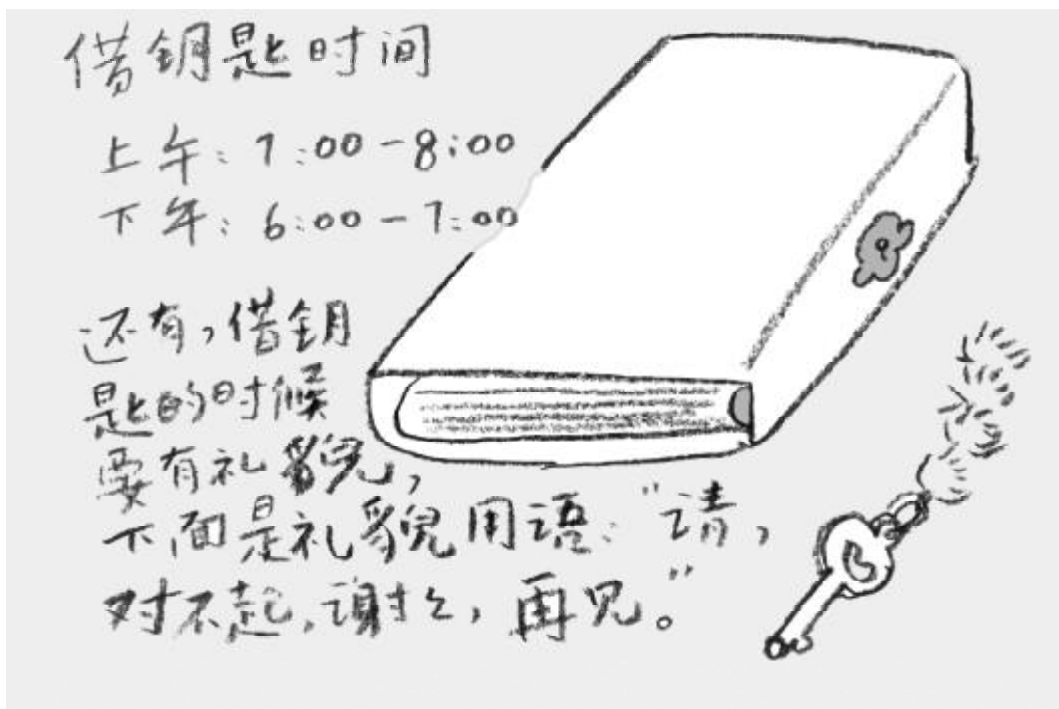 借钥匙时间
上午：7：00－8：00
下午：6：00－7：00
还有，借钥
匙的时候
要有礼貌，
下面是礼貌用语：“请，
对不起，谢谢，再见。”